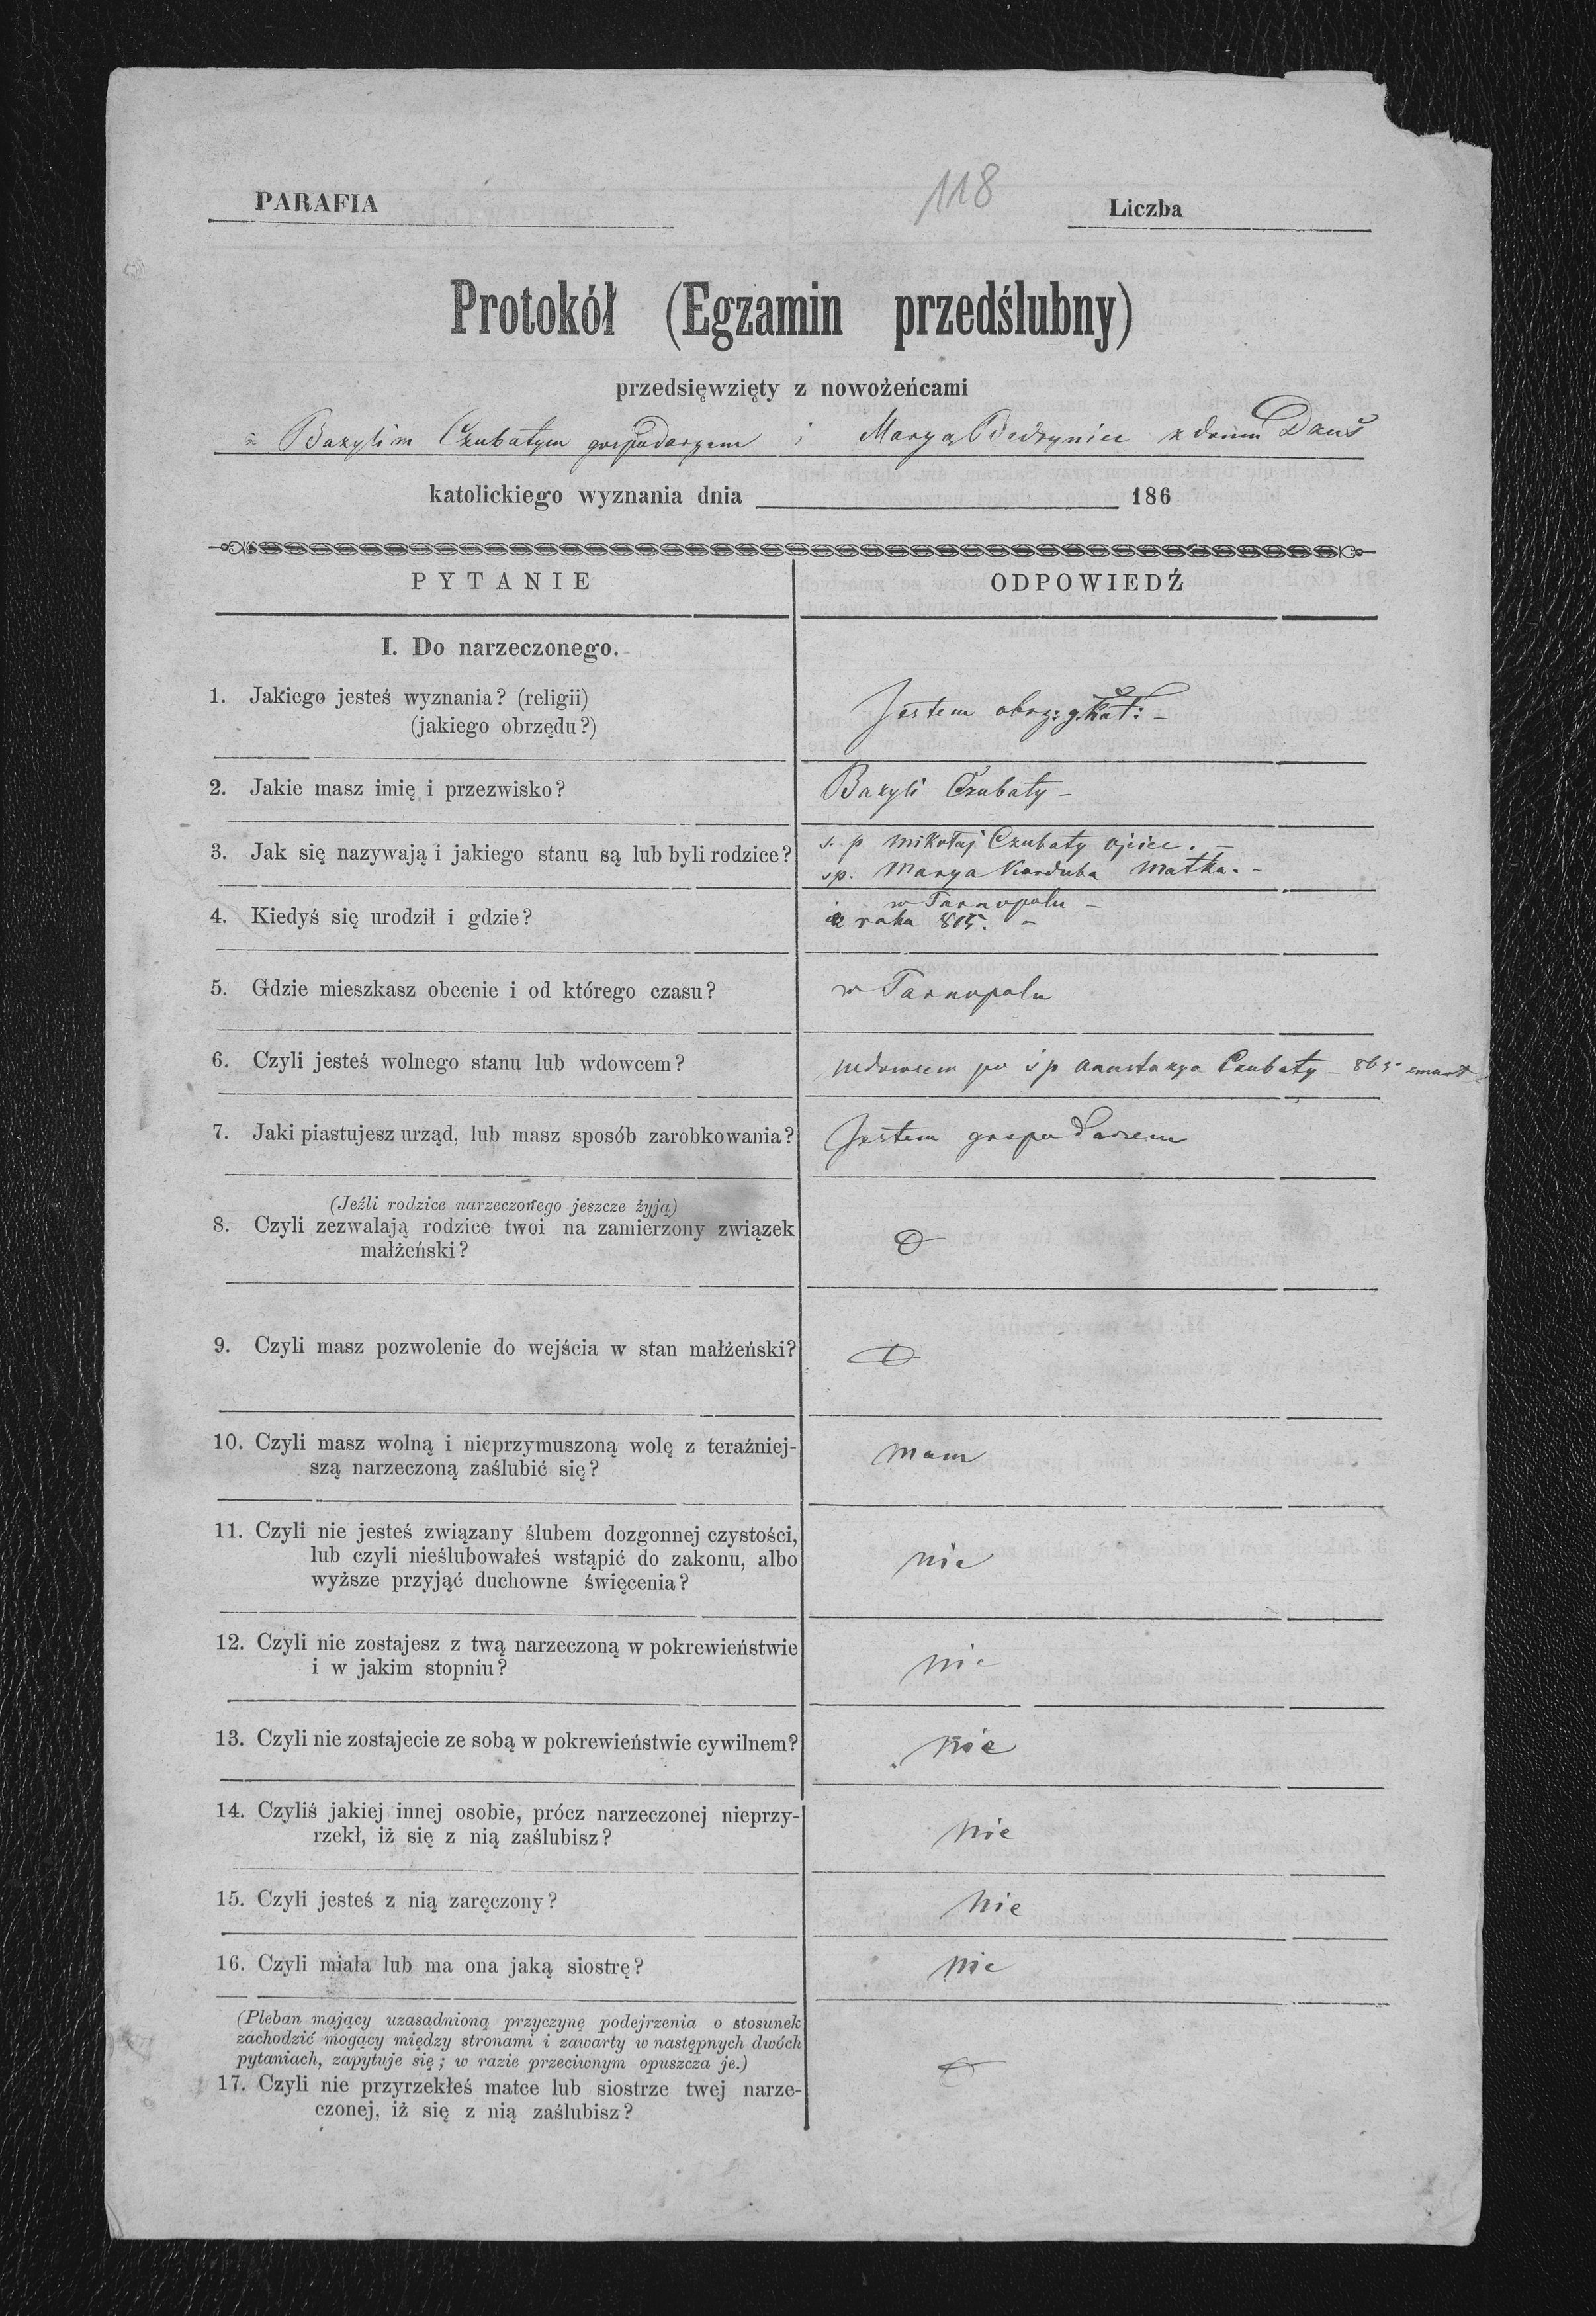 118
PARAFIA Liczba
Protokół (Egzamin przedślubny)
przedsięwzięty z nowożeńcami
z Bazylim Czubatym gospodarzem i Marya Biedryniec z domu Daus
katolickiego wyznania dnia 186
PYTANIE ODPOWIEDŹ
I. Do narzeczonego.
1. Jakiego jesteś wyznania? (religii)
(jakiego obrzędu?)
Jestem obrz: g. kat: –
2. Jakie masz imię i przezwisko?
Bazyli Czubaty –
3. Jak się nazywają i jakiego stanu są lub byli rodzice?
s. p Mikołaj Czubaty ojciec. –
sp. Marya Korduba Matka. –
4. Kiedyś się urodził i gdzie?
w Tarnopolu –
roku 815. –
5. Gdzie mieszkasz obecnie i od którego czasu?
w Tarnopolu
6. Czyli jesteś wolnego stanu lub wdowcem?
wdowcem po ś p Anastazya Czubaty – 865 zmart
7. Jaki piastujesz urząd, lub masz sposób zarobkowania?
Jestem gospodarzem
(Jeźli rodzice narzeczonego jeszcze żyją)
8. Czyli zezwalają rodzice twoi na zamierzony związek
małżeński?
9. Czyli masz pozwolenie do wejścia w stan małżeński?
10. Czyli masz wolną i nieprzymuszoną wolę z teraźniej-
szą narzeczoną zaślubić się?
mam
11. Czyli nie jesteś związany ślubem dozgonnej czystości,
lub czyli nieślubowałeś wstąpić do zakonu, albo
wyższe przyjąć duchowne święcenia?
nie
12. Czyli nie zostajesz z twą narzeczoną w pokrewieństwie
i w jakim stopniu?
nie
13. Czyli nie zostajecie ze sobą w pokrewieństwie cywilnem?
nie
14. Czyliś jakiej innej osobie, prócz narzeczonej nieprzy-
rzekł, iż się z nią zaślubisz?
nie
15. Czyli jesteś z nią zaręczony?
nie
16. Czyli miała lub ma ona jaką siostrę?
nie
(Pleban mający uzasadnioną przyczynę podejrzenia o stosunek
zachodzić mogący między stronami i zawarty w następnych dwóch
pytaniach, zapytuje się; w razie przeciwnym opuszcza je.)
17. Czyli nie przyrzekłeś matce lub siostrze twej narze-
czonej, iż się z nią zaślubisz?